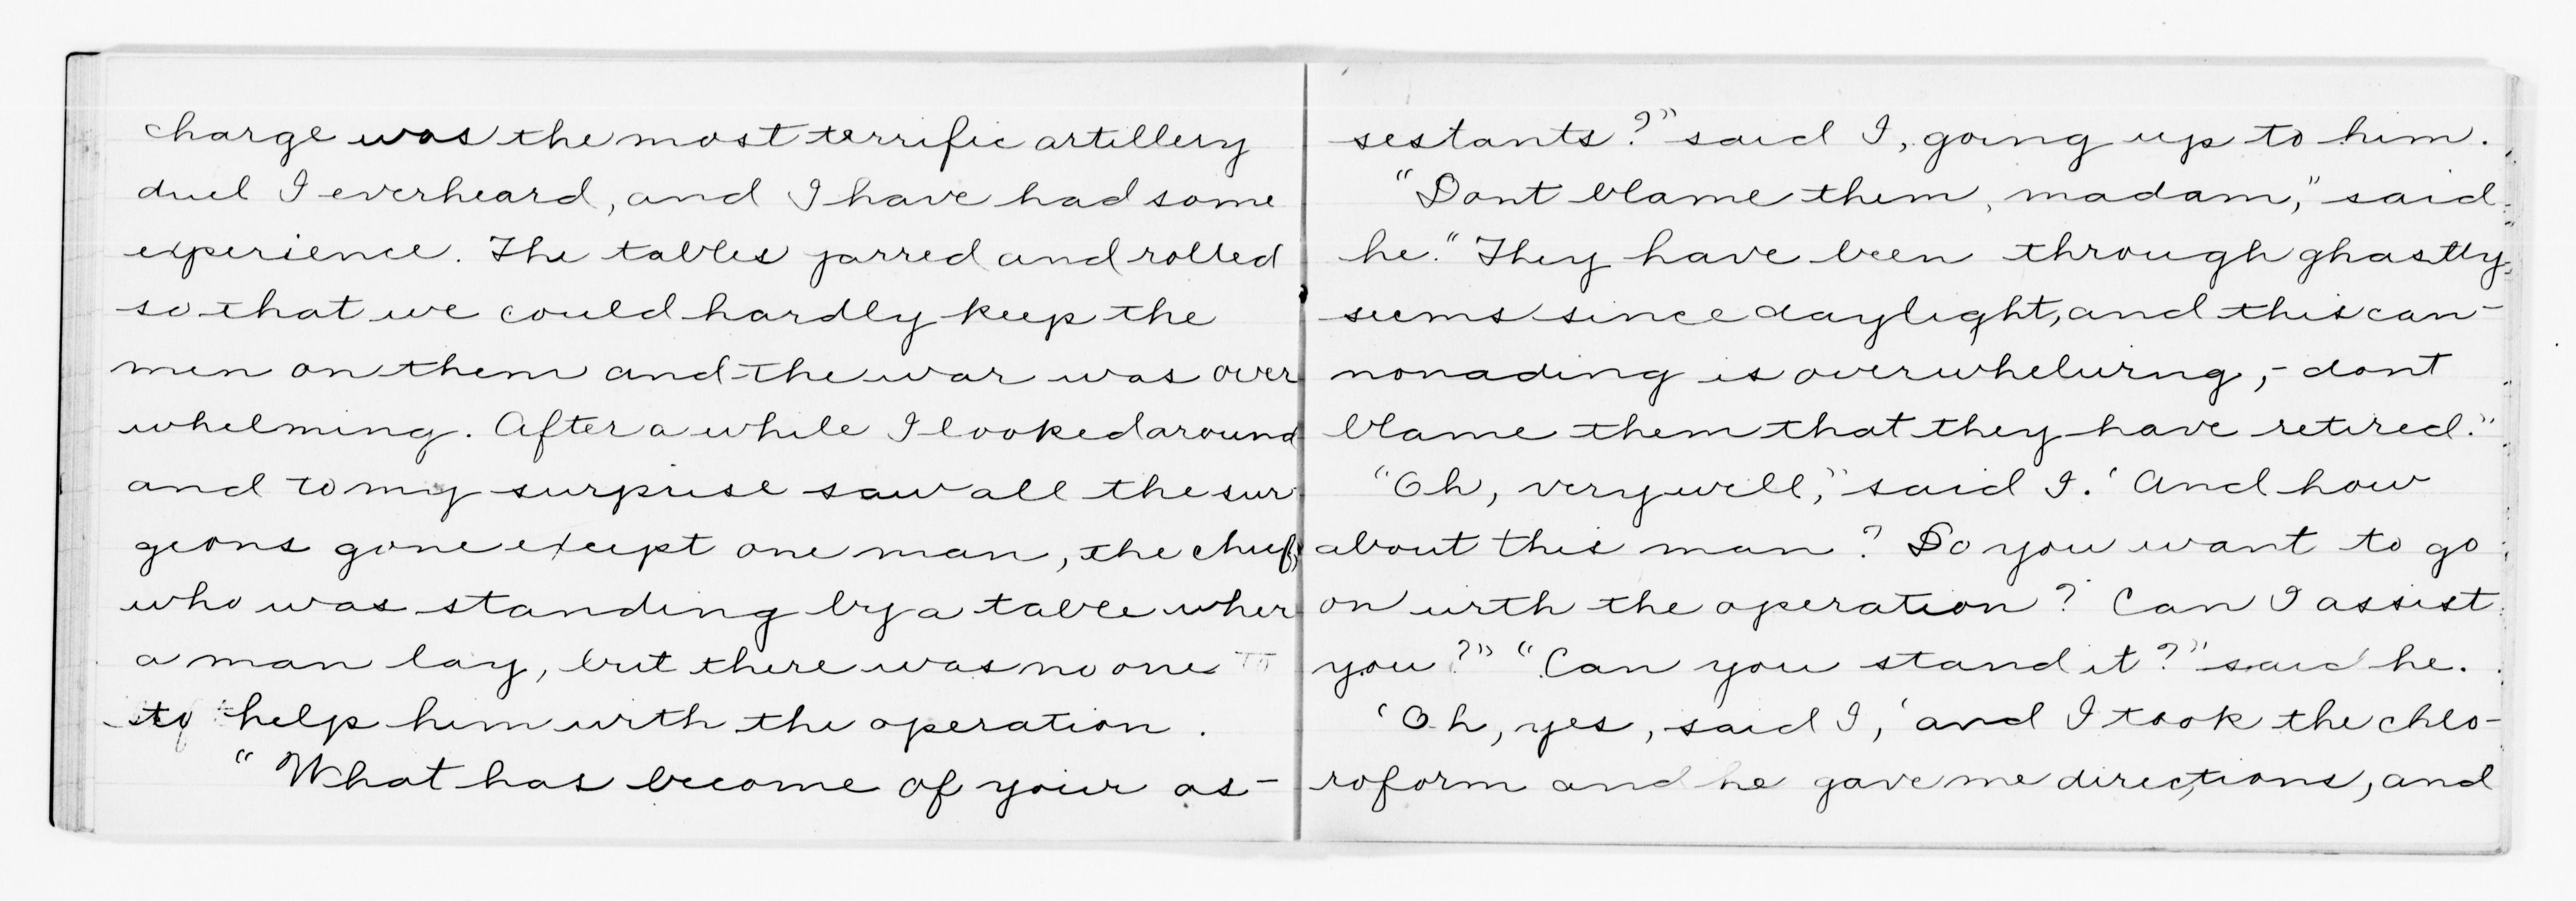 charge was the most terrific artillery
duel I ever heard, and I have had some
experience. The tables jarred and rolled
so that we could hardly keep the
men on them and the war was over
whelming. After a while I looked around
and to my surprise saw all the sur
geons gone except one man, the chief,
who was standing by a table wher
a man lay, but there was no one
to help him with the operation.
"What has become of your as-
sestants?" said I, going up to him.
"Dont blame them, madam," said
he. "They have been through ghastly
seems since daylight, and this can-
nonading is overwhelming,- dont
blame them that they have retired."
"Oh, very well," said I. 'And how
about this man? Do you want to go
on with the operation? Can I assist
you?" "Can you stand it?" said he.
'Oh, yes, said I,' and I took the chlo-
roform and he gave me directions, and